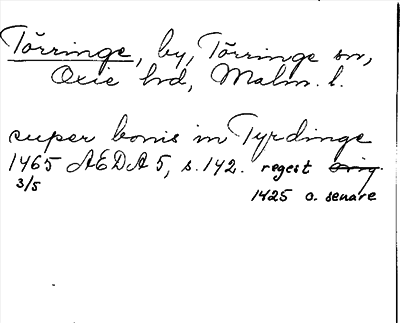 Törringe, by, Törringe sn,
Oxie hd, Malm. l.
super bonis in Tyrdinge
1465 AEDA 5, s. 142. regest orig.
3/5
1425 o. senare